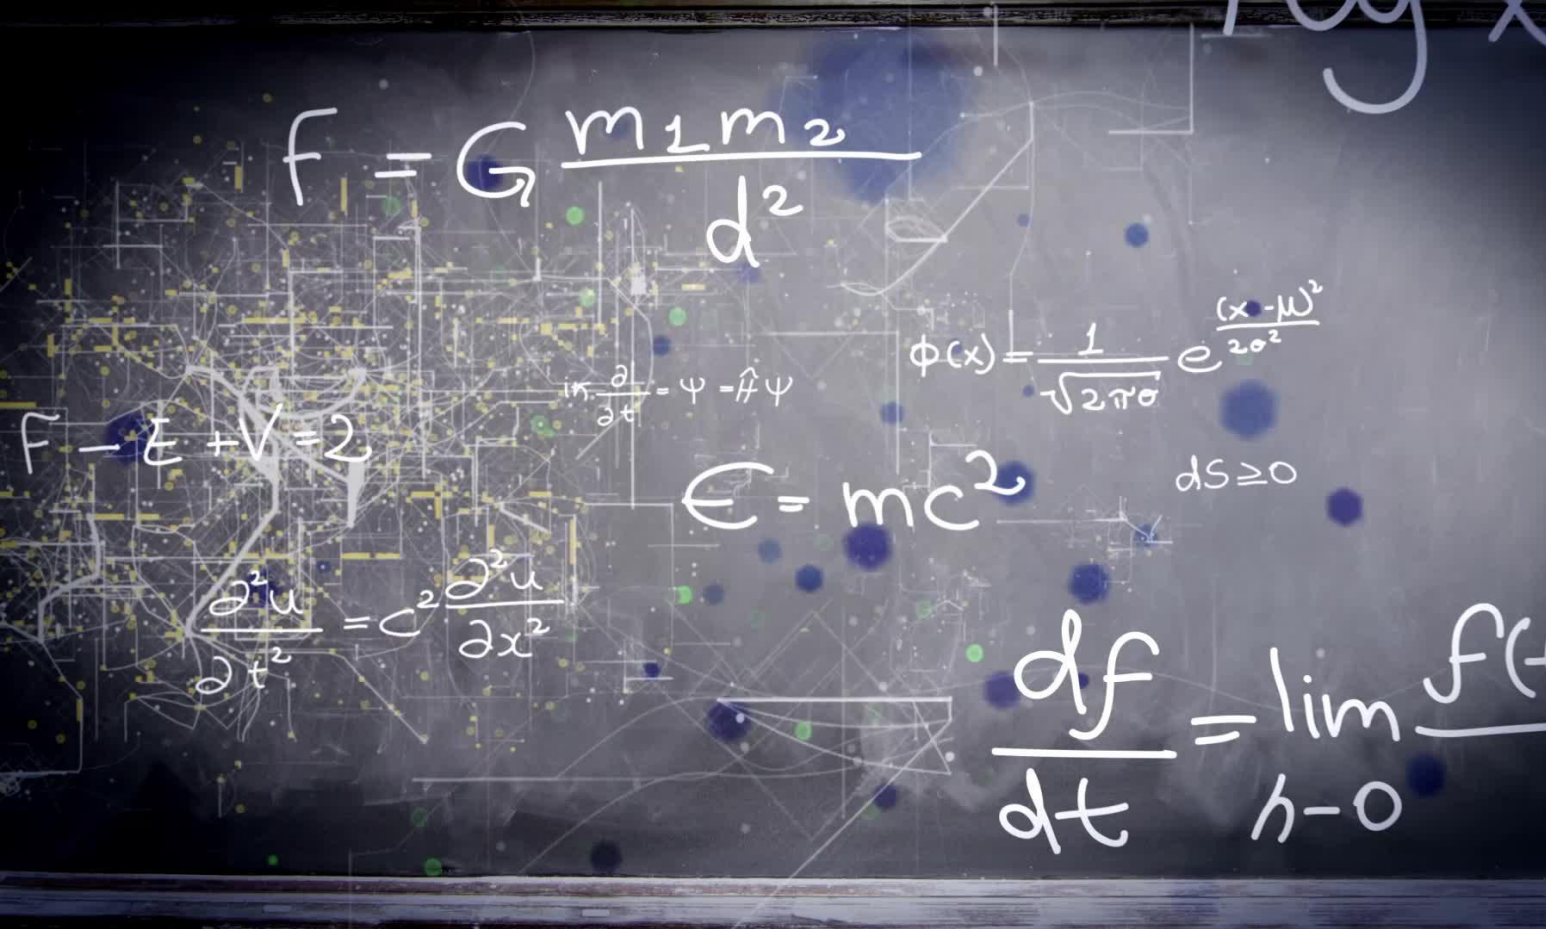 log x
F = G m1m2/d²
ϕ(x) = 1/√2πσ e (x-μ)²/2σ²
iħ ∂/∂t = Ψ = Ĥ Ψ
F - E + V = 2
E = mc²
dS ≥ 0
∂²u/∂t² = c² ∂²u/∂x²
df/dt = lim h-0 f(